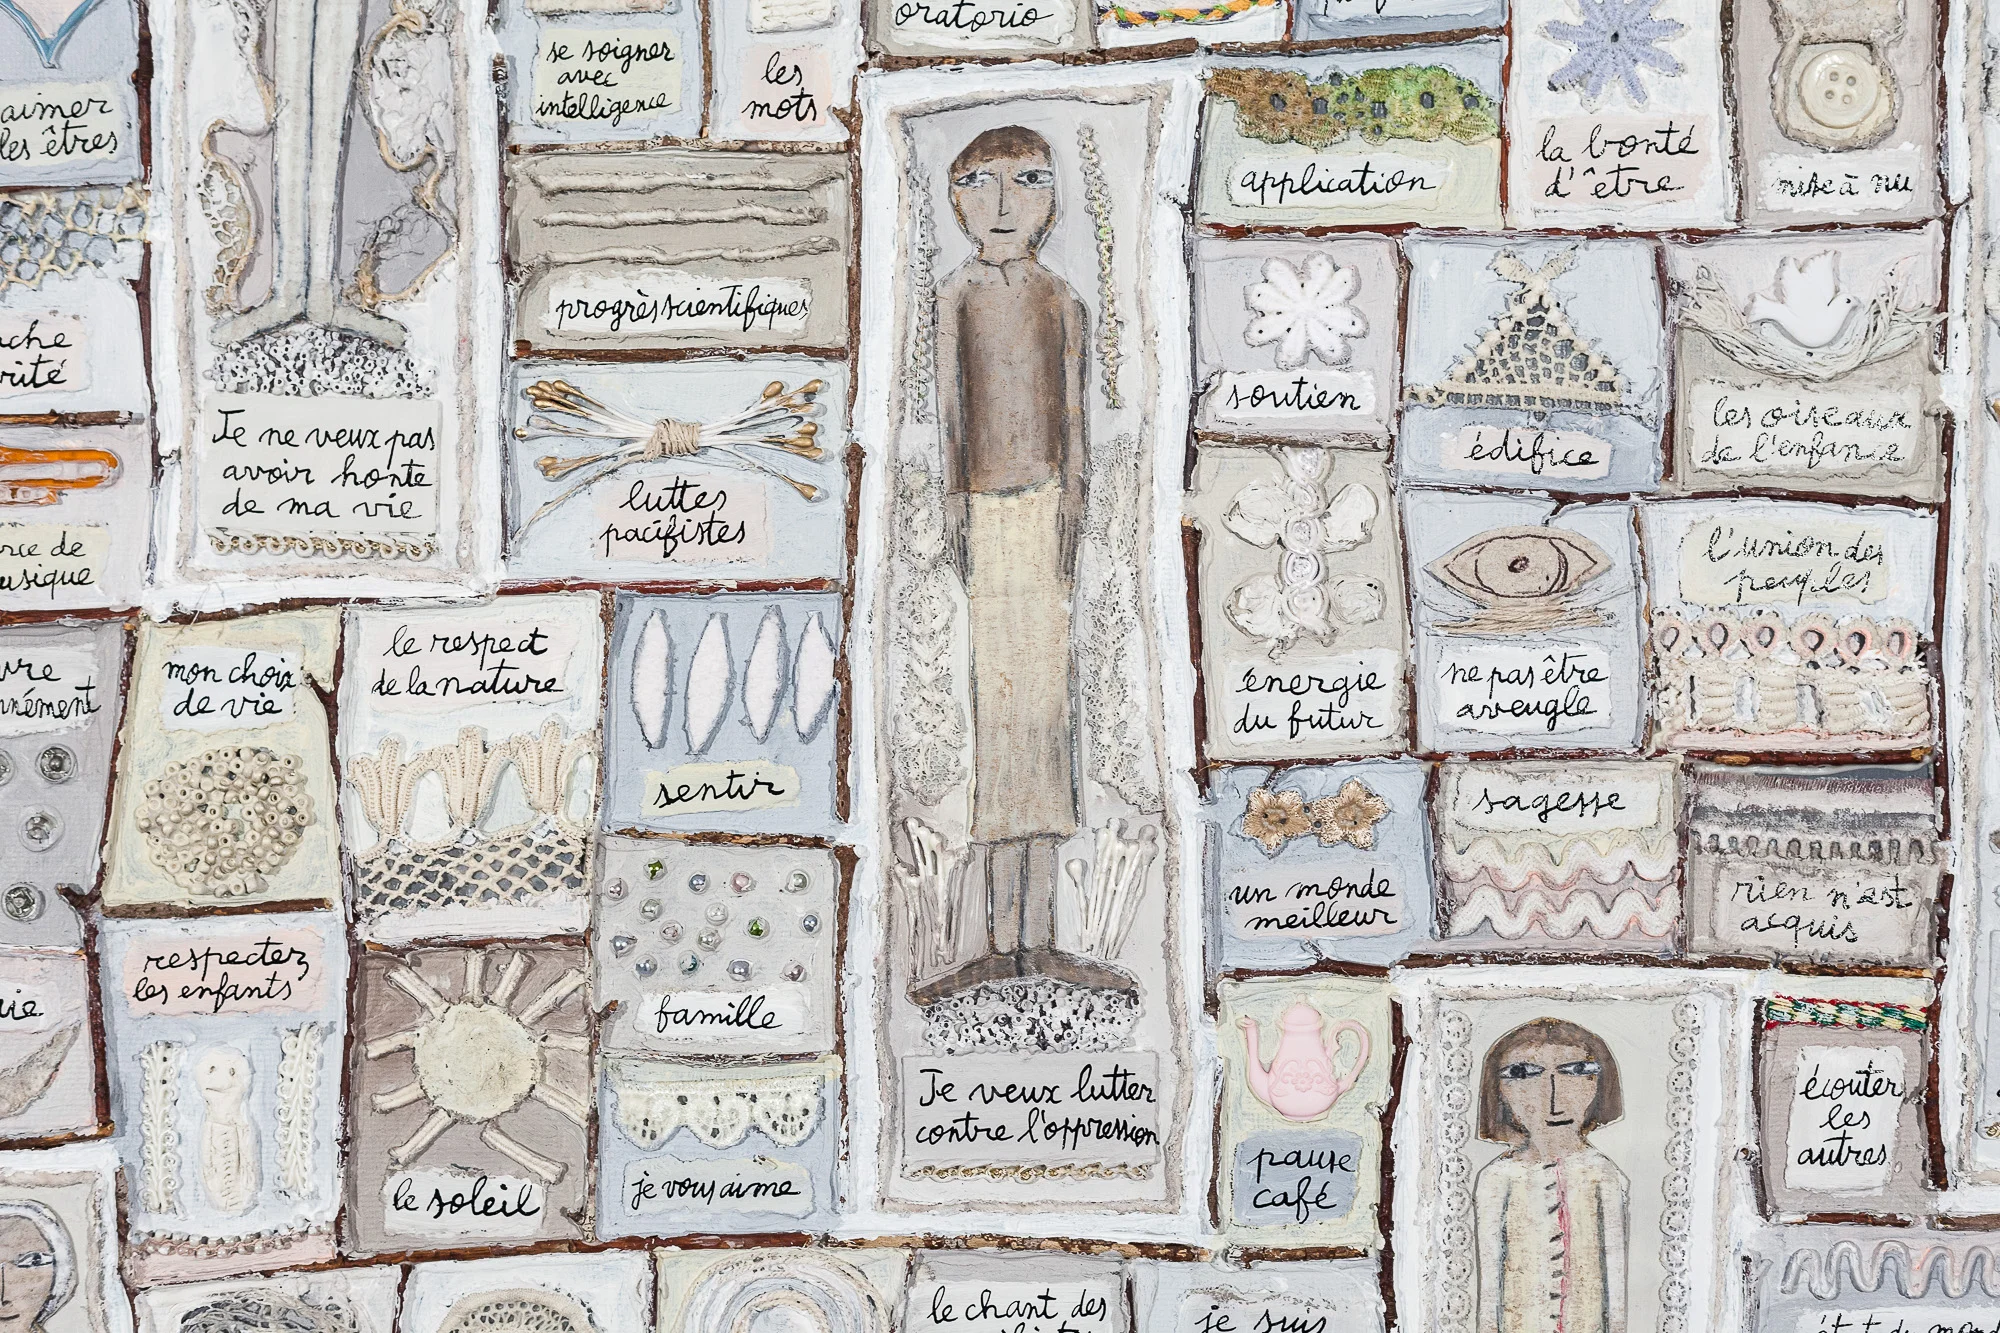 oratorio
se soigner
avec
intelligence
les
mots
aimer
les êtres
application
la bonté
d'être
mise à nu
progrès scientifiques
soutien
édifice
les oiseaux
de l'enfance
Je ne veux pas
avoir honte
de ma vie
luttes
pacifistes
l'union des
peuples
énergie
du futur
ne pas être
aveugle
mon choix
de vie
le respect
de la nature
sentir
sagesse
un monde
meilleur
rien n'est
acquis
respectez
les enfants
famille
Je veux lutter
contre l'oppression
écouter
les
autres
pause
café
le soleil
je vous aime
le chant des
je suis